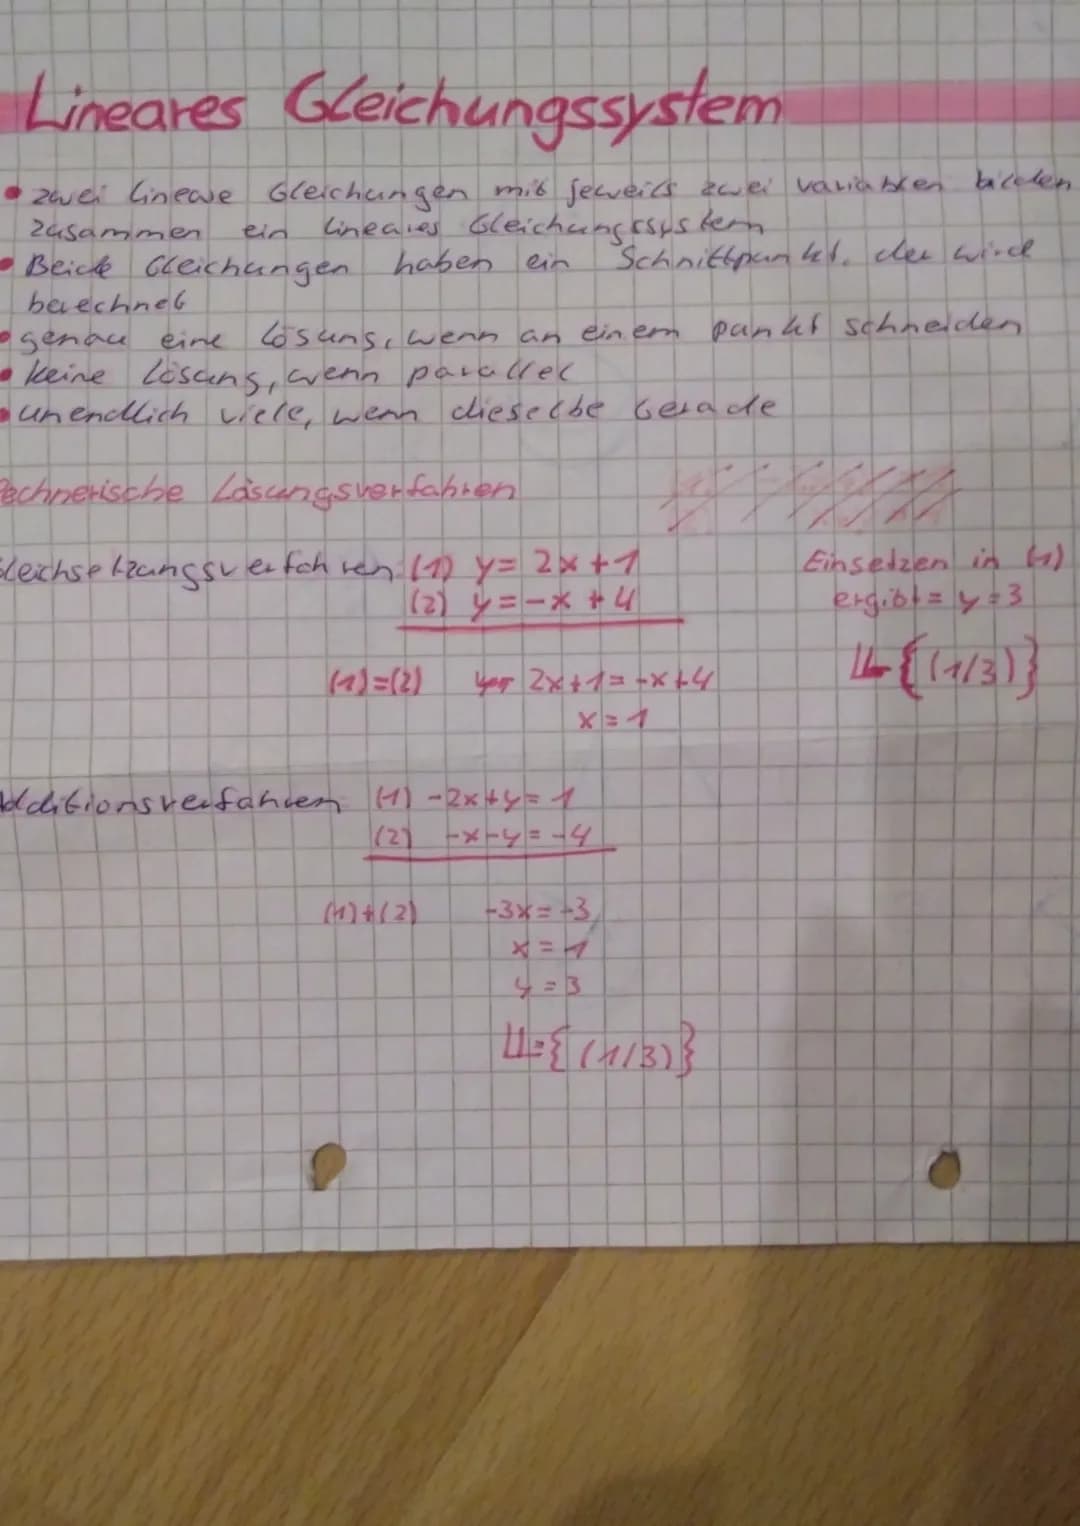 Lineares Gleichungssystem
• zwei lineare Gleichungen mit jeweils zwei variablen bilden
zusammen ein lineares Gleichungssystem
• Beide Gleichungen haben ein Schnittpunkt. der wird
berechnet
• genau eine Lösung, wenn an einem punkt schneiden
• keine Lösung, wenn parallel
• unendlich viele, wenn dieselbe Gerade
Rechnerische Lösungsverfahren
Gleichsetzungsverfahren: (1) y = 2x + 1
(2) y = -x + 4
(1)=(2) 2x+1 = -x+4
x = 1
Einsetzen in (1)
ergibt = y = 3
𝕃 {(1/3)}
Additionsverfahren (1) -2x+y = 1
(2) -x-y = -4
(1)+(2) -3x = -3
x = 1
y = 3
𝕃={(1/3)}